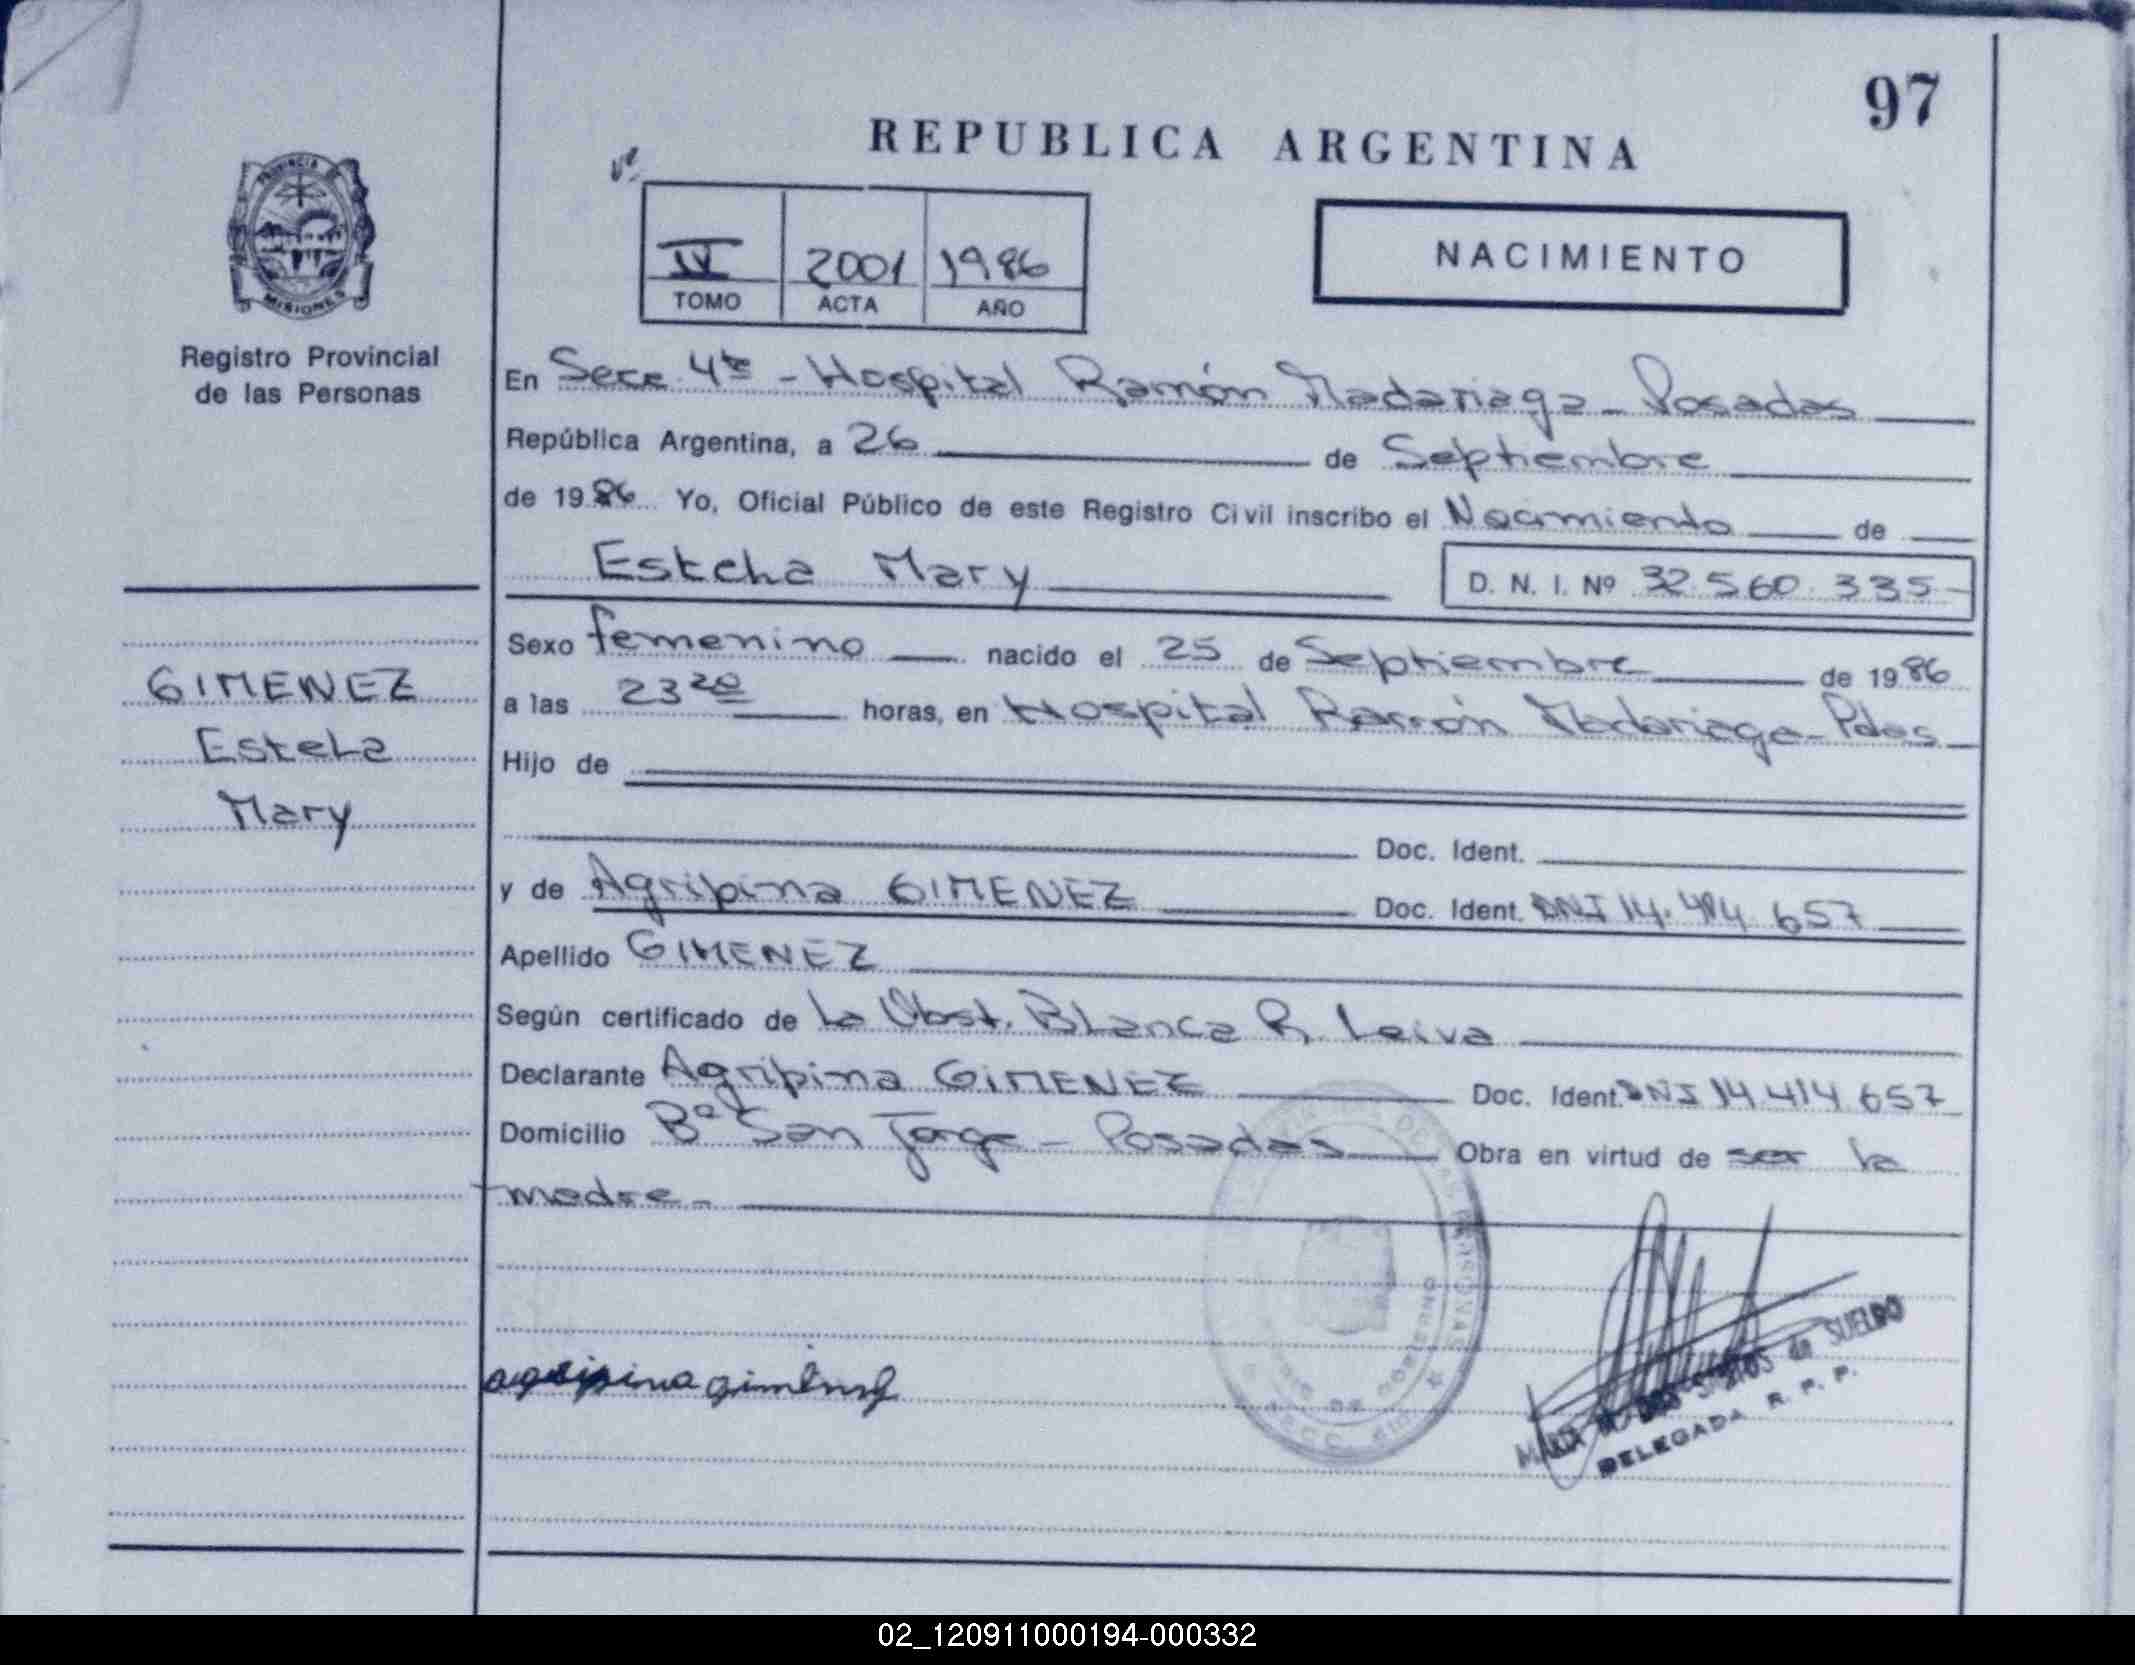 97
REPUBLICA ARGENTINA
NACIMIENTO
IV 2001 1986
TOMO ACTA AÑO
PROVINCIA DE
MISIONES
Registro Provincial
de las Personas
En Secc 4ta - Hospital Ramón Madariaga - Posadas
República Argentina, a 26 de Septiembre
de 1986 Yo, Oficial Público de este Registro Civil inscribo el Nacimiento de
Estela Mary D. N. I. Nº 32.560.335
Sexo femenino nacido el 25 de Septiembre de 1986
a las 23 20 horas, en Hospital Ramón Madariaga - Pdas
Hijo de
Doc. Ident.
y de Agripina GIMENEZ Doc. Ident. DNI 14.414.657
Apellido GIMENEZ
Según certificado de La Obst. Blanca R. Leiva
Declarante Agripina GIMENEZ Doc. Ident. DNI 14 414 657
Domicilio Bº San Jorge - Posadas Obra en virtud de ser la
madre -
GIMENEZ
Estela
Mary
agripina gimenez
de SUELDO
DELEGADA R. P. P.
02_120911000194-000332